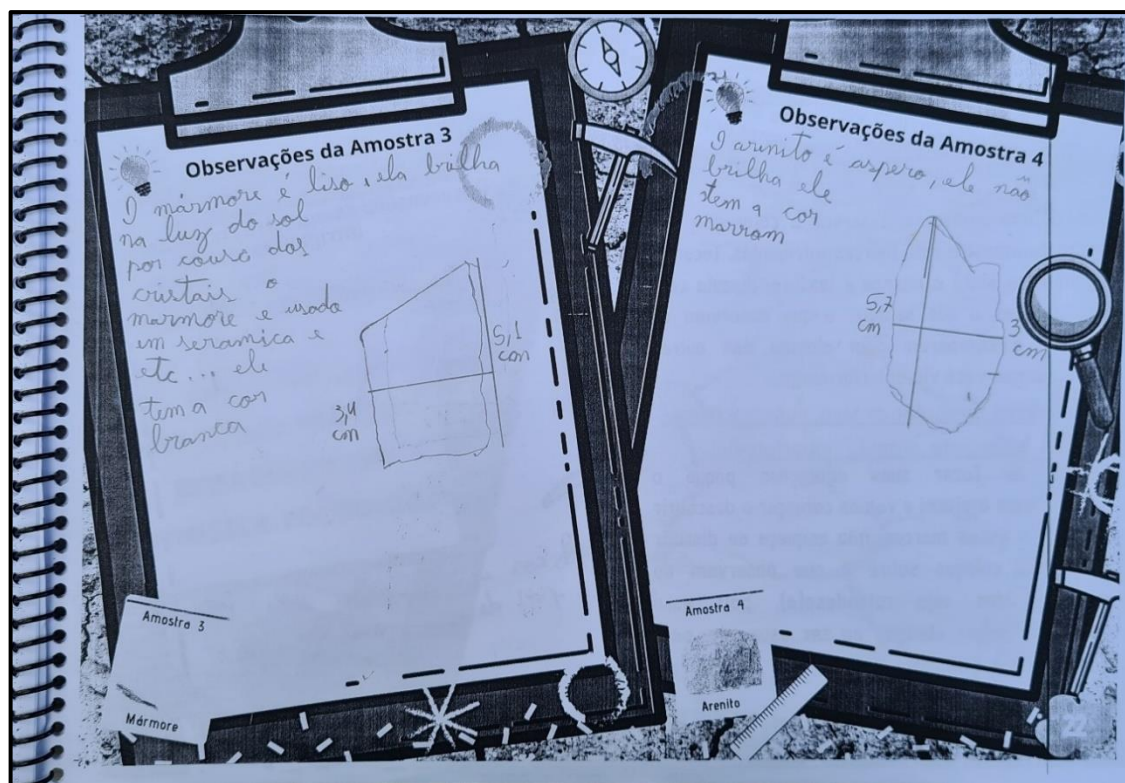 Observações da Amostra 3
O mármore é liso, ela brilha
na luz do sol
por cousa dos
cristais o
marmore e usado
em seramica e
etc... ele
tem a cor
branca
5,1
cm
3,4
cm
Amostra 3
Mármore
Observações da Amostra 4
O arinito é aspero, ele não
brilha ele
tem a cor
marrom
5,7
cm
3
cm
Amostra 4
Arenito
22